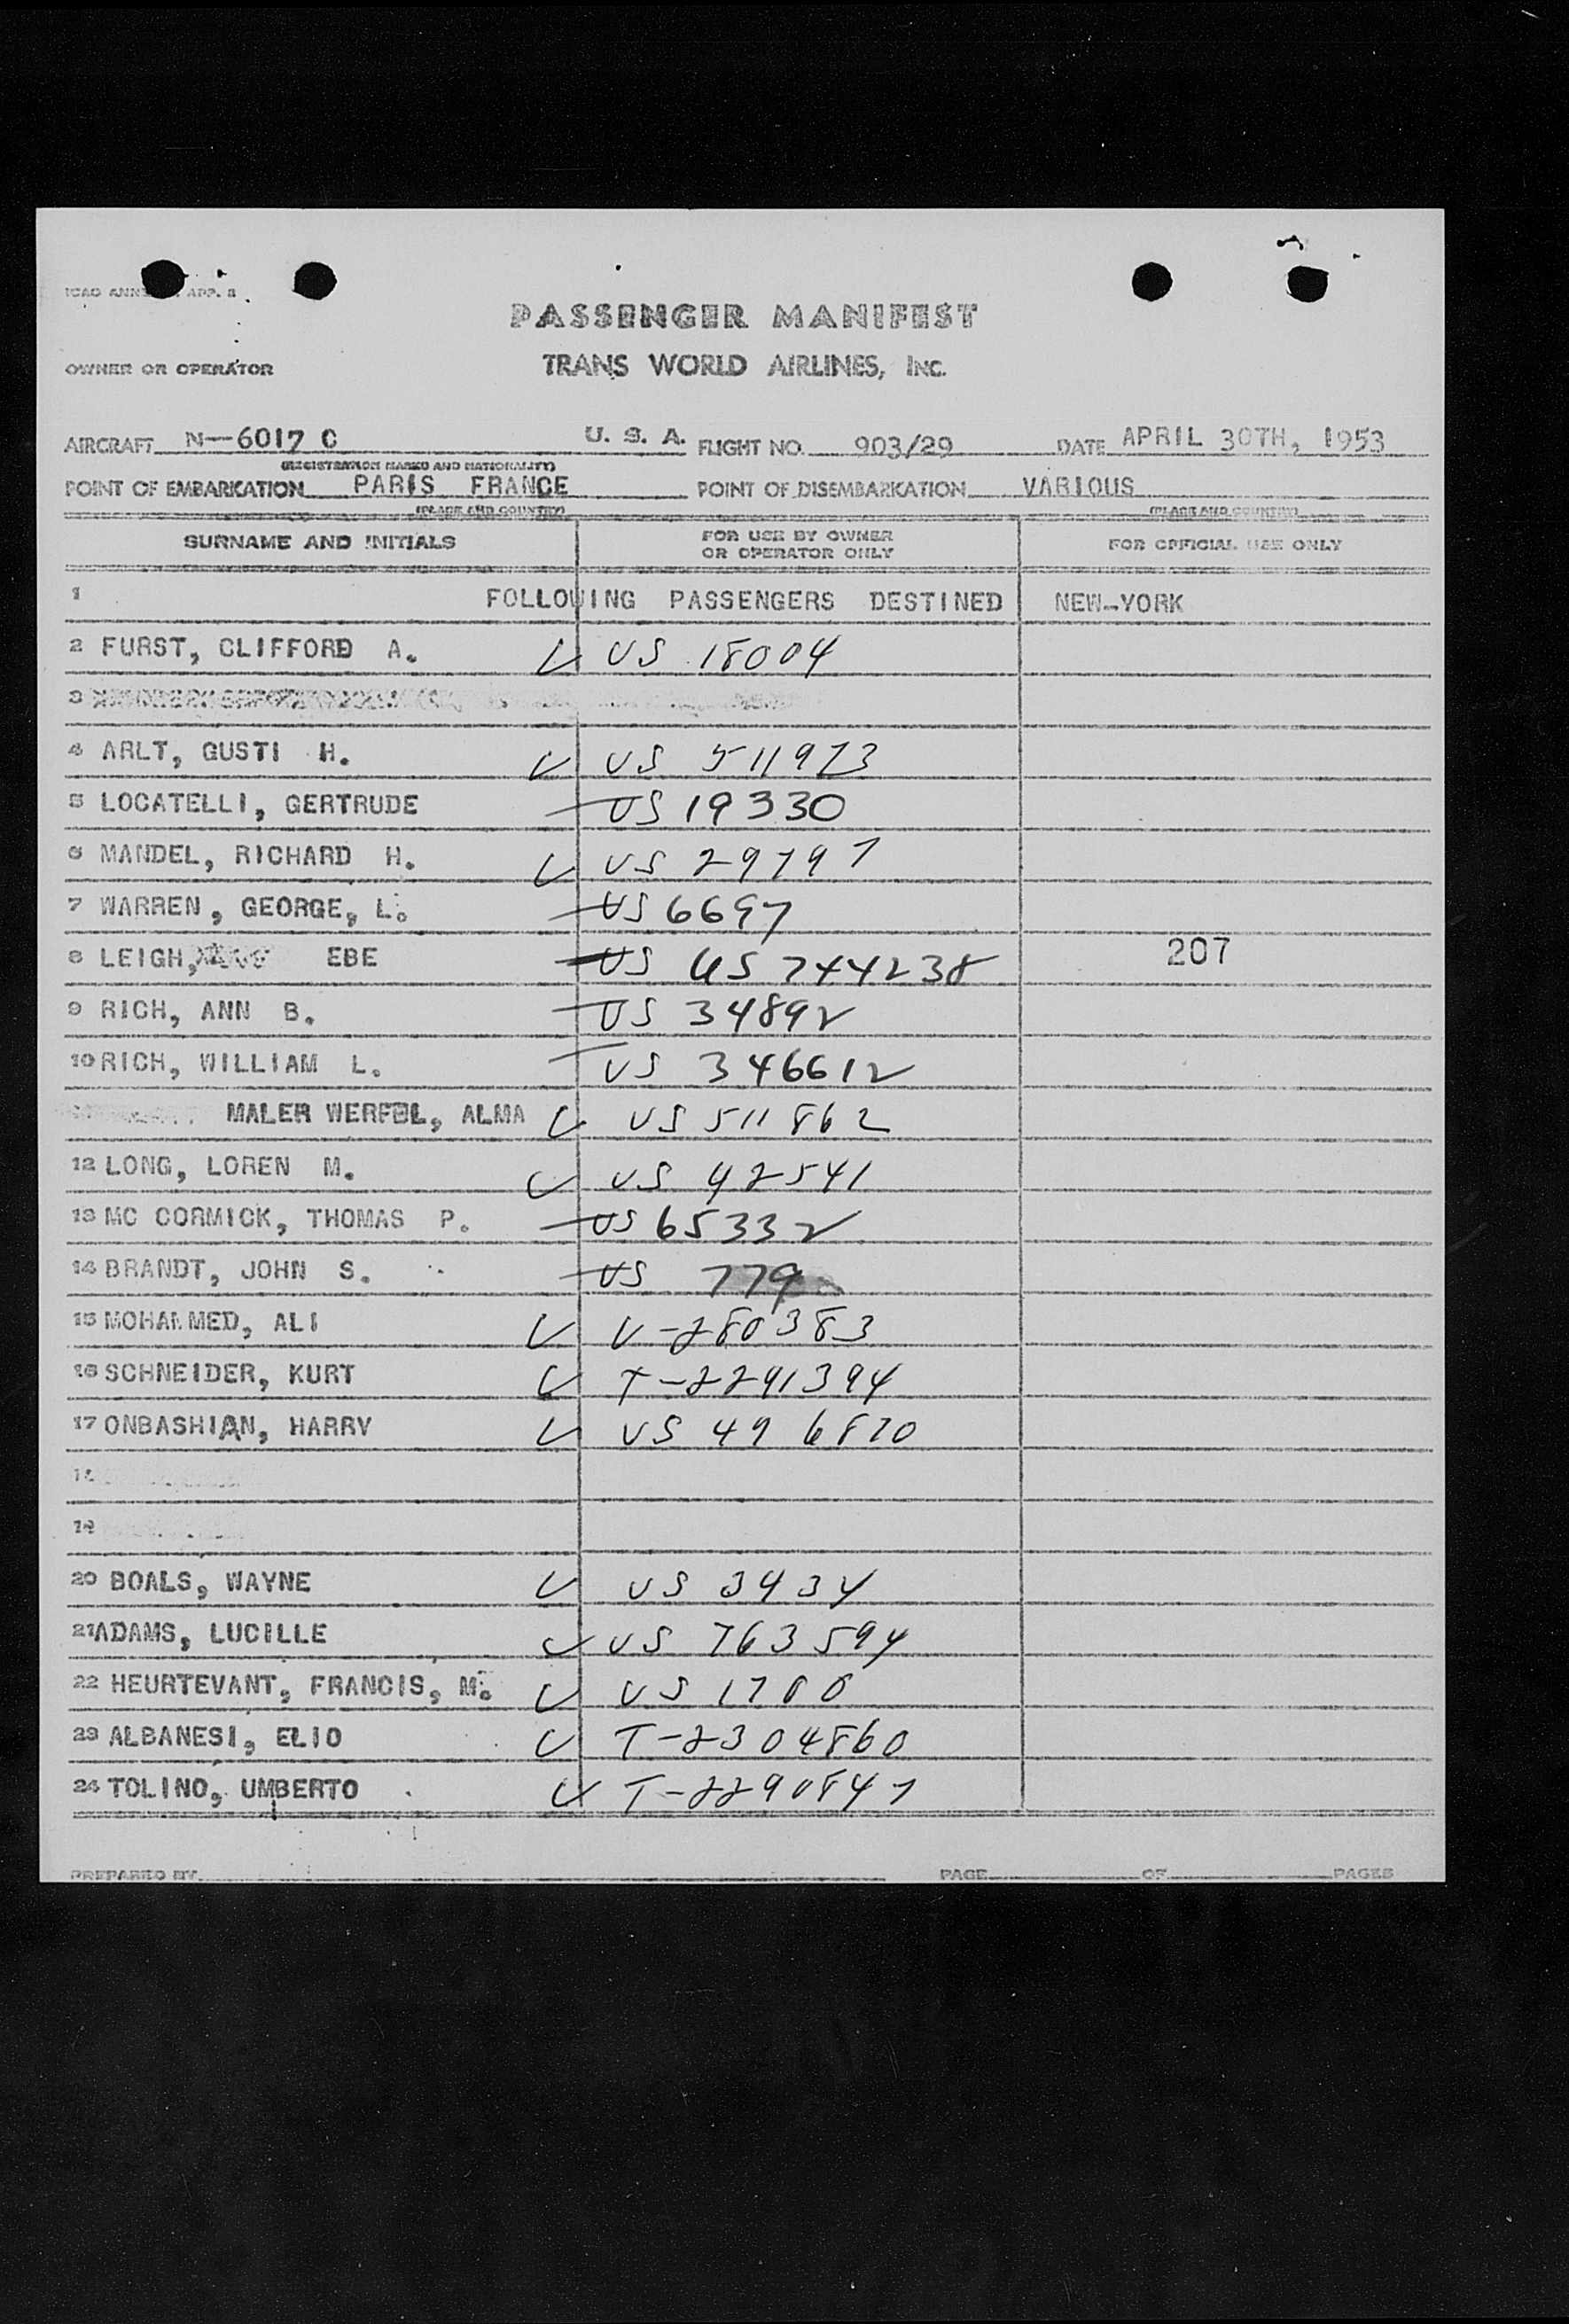 ICAO ANN APP. 8
PASSENGER MANIFEST
OWNER OR OPERATOR TRANS WORLD AIRLINES, INC.
AIRCRAFT N-6017 C U. S. A. FLIGHT NO. 903/29 DATE APRIL 30TH, 1953
(REGISTRATION MARKS AND NATIONALITY)
POINT OF EMBARKATION PARIS FRANCE POINT OF DISEMBARKATION VARIOUS
(PLACE AND COUNTRY) (PLACE AND COUNTRY)
SURNAME AND INITIALS FOR USE BY OWNER OR OPERATOR ONLY FOR OFFICIAL USE ONLY
1 FOLLOWING PASSENGERS DESTINED NEW-YORK
2 FURST, CLIFFORD A. US 18004
3
4 ARLT, GUSTI H. US 511973
5 LOCATELLI, GERTRUDE US 19330
6 MANDEL, RICHARD H. US 29797
7 WARREN, GEORGE, L. US 6697
8 LEIGH, EBE US US 744238 207
9 RICH, ANN B. US 34892
10 RICH, WILLIAM L. US 346612
MALER WERFEL, ALMA US 511862
12 LONG, LOREN M. US 42541
13 MC CORMICK, THOMAS P. US 65332
14 BRANDT, JOHN S. US 779
15 MOHAMMED, ALI V-280383
16 SCHNEIDER, KURT T-2291394
17 ONBASHIAN, HARRY US 49 6870
18
19
20 BOALS, WAYNE US 3434
21 ADAMS, LUCILLE US 763594
22 HEURTEVANT, FRANCIS, M. US 1700
23 ALBANESI, ELIO T-2304860
24 TOLINO, UMBERTO T-2290847
PREPARED BY PAGE OF PAGES